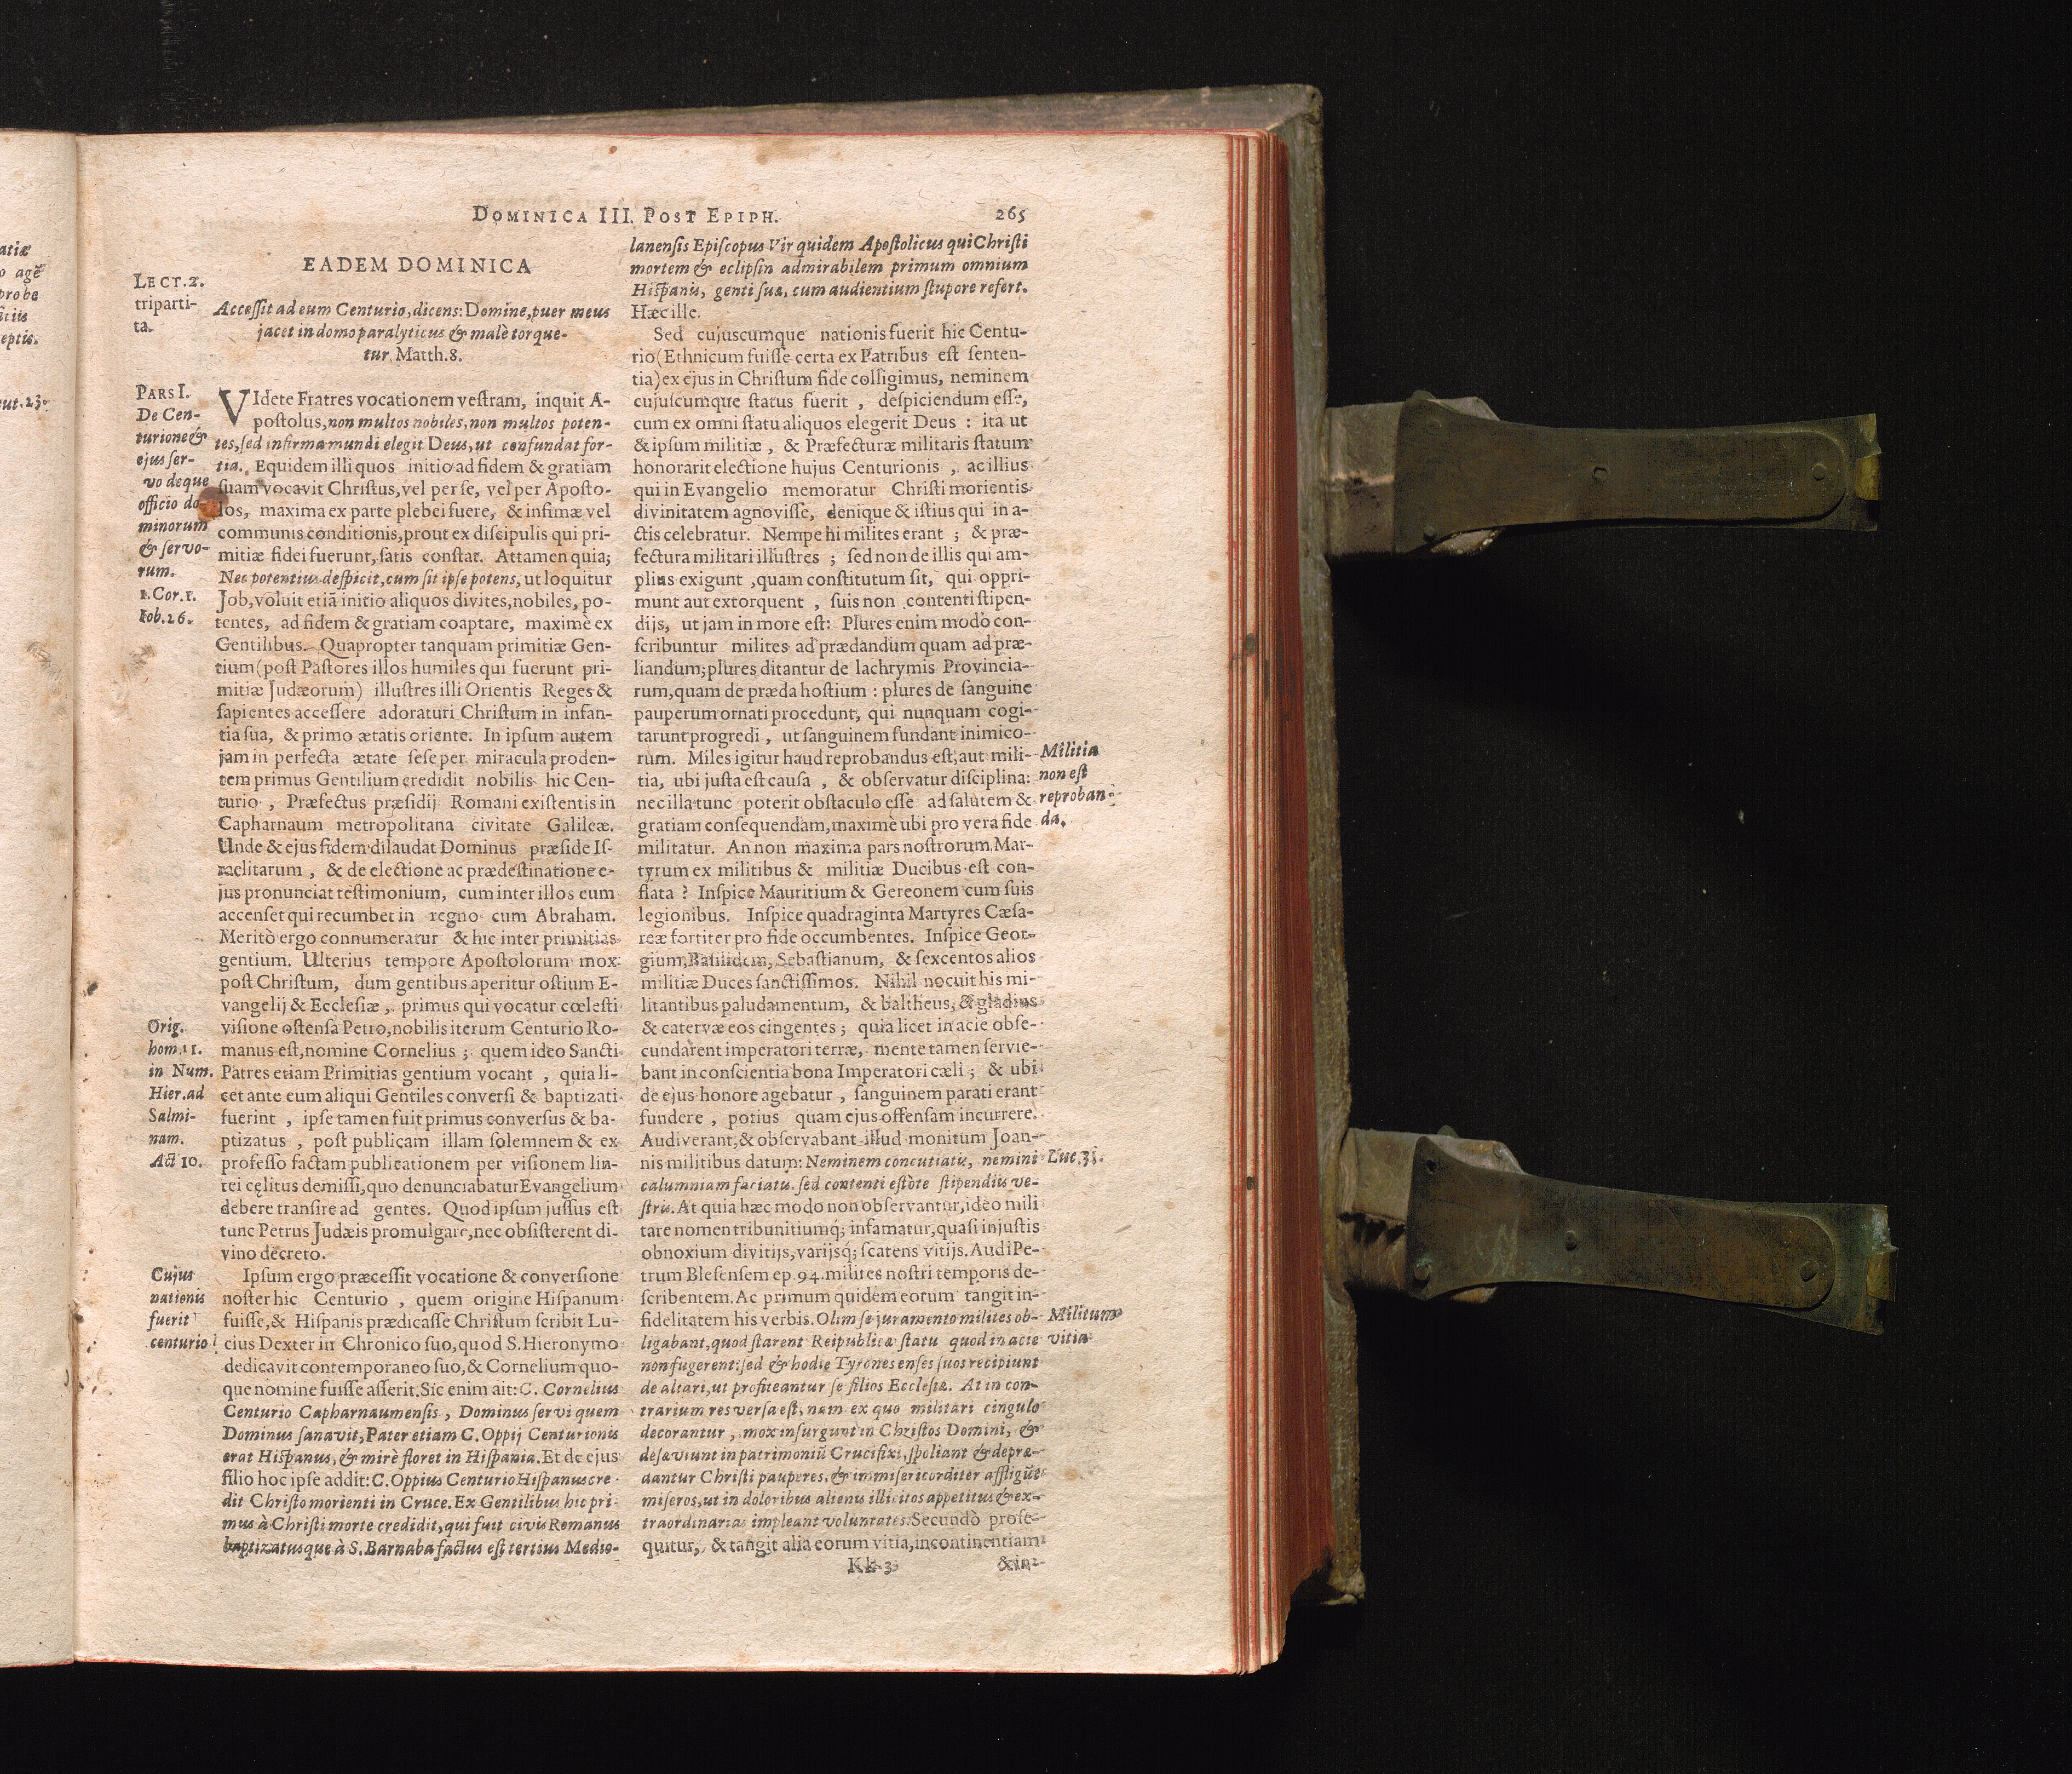 DOMINICA III. POST EPIPH.
265
EADEM DOMINICA
LECT.2.
triparti-
ta.
Accessit ad eum Centurio, dicens: Domine, puer meus
jacet in domo paralyticus & malè torque-
tur. Matth.8.
PARS I.
De Cen-
turione &
ejus ser-
vo deque
officio do-
minorum
& servo-
rum.
1.Cor.1.
Iob.26.
VIdete Fratres vocationem vestram, inquit A-
postolus, non multos nobiles, non multos poten-
tes, sed infirma mundi elegit Deus, ut confundat for-
tia. Equidem illi quos initio ad fidem & gratiam
suam vocavit Christus, vel per se, vel per Aposto-
los, maxima ex parte plebei fuere, & infimæ vel
communis conditionis, prout ex discipulis qui pri-
mitiæ fidei fuerunt, satis constat. Attamen quia;
Nec potentius despicit, cum sit ipse potens, ut loquitur
Job, voluit etiã initio aliquos divites, nobiles, po-
tentes, ad fidem & gratiam coaptare, maximè ex
Gentilibus. Quapropter tanquam primitiæ Gen-
tium (post Pastores illos humiles qui fuerunt pri-
mitiæ Judæorum) illustres illi Orientis Reges &
sapientes accessere adoraturi Christum in infan-
tia sua, & primo ætatis oriente. In ipsum autem
jam in perfecta ætate sese per miracula proden-
tem primus Gentilium credidit nobilis hic Cen-
turio, Præfectus præsidij Romani existentis in
Capharnaum metropolitana civitate Galileæ.
Unde & ejus fidem dilaudat Dominus præ fide Is-
raelitarum, & de electione ac prædestinatione e-
jus pronunciat testimonium, cum inter illos eum
accenset qui recumbet in regno cum Abraham.
Meritò ergo connumeratur & hic inter primitias
gentium. Ulterius tempore Apostolorum mox
post Christum, dum gentibus aperitur ostium E-
vangelij & Ecclesiæ, primus qui vocatur cœlesti
visione ostensa Petro, nobilis iterum Centurio Ro-
manus est, nomine Cornelius; quem ideo Sancti
Patres etiam Primitias gentium vocant, quia li-
cet ante eum aliqui Gentiles conversi & baptizati
fuerint, ipse tamen fuit primus conversus & ba-
ptizatus, post publicam illam solemnem & ex
professo factam publicationem per visionem lin-
tei cęlitus demissi, quo denunciabatur Evangelium
debere transire ad gentes. Quod ipsum jussus est
tunc Petrus Judæis promulgare, nec obsisterent di-
vino decreto.
Orig.
hom.11.
in Num.
Hier. ad
Salmi-
nam.
Act 10.
Cujus
nationis
fuerit
centurio
Ipsum ergo præcessit vocatione & conversione
noster hic Centurio, quem origine Hispanum
fuisse, & Hispanis prædicasse Christum scribit Lu-
cius Dexter in Chronico suo, quod S. Hieronymo
dedicavit contemporaneo suo, & Cornelium quo-
que nomine fuisse asserit. Sic enim ait: C. Cornelius
Centurio Capharnaumensis, Dominus servi quem
Dominus sanavit, Pater etiam C. Oppij Centurionis
erat Hispanus, & mirè floret in Hispania. Et de ejus
filio hoc ipse addit: C. Oppius Centurio Hispanus cre-
dit Christo morienti in Cruce. Ex Gentilibus hic pri-
mus à Christi morte credidit, qui fuit civis Romanus
baptizatusque à S. Barnaba factus est tertius Medio-
lanensis Episcopus Vir quidem Apostolicus qui Christi
mortem & eclipsin admirabilem primum omnium
Hispanis, genti suæ, cum audientium stupore refert.
Hæc ille.
Sed cujuscumque nationis fuerit hic Centu-
rio (Ethnicum fuisse certa ex Patribus est senten-
tia) ex ejus in Christum fide colligimus, neminem
cujuscumque status fuerit, despiciendum esse,
cum ex omni statu aliquos elegerit Deus: ita ut
& ipsum militiæ, & Præfecturæ militaris statum
honorarit electione hujus Centurionis, ac illius
qui in Evangelio memoratur Christi morientis
divinitatem agnovisse, denique & istius qui in a-
ctis celebratur. Nempe hi milites erant; & præ-
fectura militari illustres; sed non de illis qui am-
plius exigunt, quam constitutum sit, qui oppri-
munt aut extorquent, suis non contenti stipen-
dijs, ut jam in more est: Plures enim modò con-
scribuntur milites ad prædandum quam ad præ-
liandum; plures ditantur de lachrymis Provincia-
rum, quam de præda hostium: plures de sanguine
pauperum ornati procedunt, qui nunquam cogi-
tarunt progredi, ut sanguinem fundant inimico-
rum. Miles igitur haud reprobandus est, aut mili-
tia, ubi justa est causa, & observatur disciplina:
nec illa tunc poterit obstaculo esse ad salutem &
gratiam consequendam, maximè ubi pro vera fide
militatur. An non maxima pars nostrorum Mar-
tyrum ex militibus & militiæ Ducibus est con-
flata? Inspice Mauritium & Gereonem cum suis
legionibus. Inspice quadraginta Martyres Cæsa-
reæ fortiter pro fide occumbentes. Inspice Geor-
gium, Basilidem, Sebastianum, & sexcentos alios
militiæ Duces sanctissimos. Nihil nocuit his mi-
litantibus paludamentum, & baltheus, & gladius
& catervæ eos cingentes; quia licet in acie obse-
cundarent imperatori terræ, mente tamen servie-
bant in conscientia bona Imperatori cæli; & ubi
de ejus honore agebatur, sanguinem parati erant
fundere, potius quam ejus offensam incurrere.
Audiverant, & observabant illud monitum Joan-
nis militibus datum: Neminem concutiatis, nemini
calumniam faciatis. sed contenti estote stipendiis ve-
stris. At quia hæc modo non observantur, ideo mili
tare nomen tribunitiumq; infamatur, quasi injustis
obnoxium divitijs, varijsq; scatens vitijs. Audi Pe-
trum Blesensem ep. 94. milites nostri temporis de-
scribentem. Ac primum quidem eorum tangit in-
fidelitatem his verbis. Olim se juramento milites ob-
ligabant, quod starent Reipublicæ statu quod in acie
non fugerent: sed & hodie Tyrones enses suos recipiunt
de altari, ut profiteantur se filios Ecclesiæ. At in con-
trarium res versa est, nam ex quo militari cingulo
decorantur, mox insurgunt in Christos Domini, &
desæviunt in patrimoniũ Crucifixi, spoliant & depræ-
dantur Christi pauperes, & immisericorditer affligũt
miseros, ut in doloribus alienis illicitos appetitus & ex-
traordinarias impleant voluntates. Secundò prose-
quitur, & tangit alia eorum vitia, incontinentiam
Militia
non est
reproban-
da.
Luc.3.
Militum
vitia
Kk 3
& in-
atiæ
o agẽ
probe
eptis.